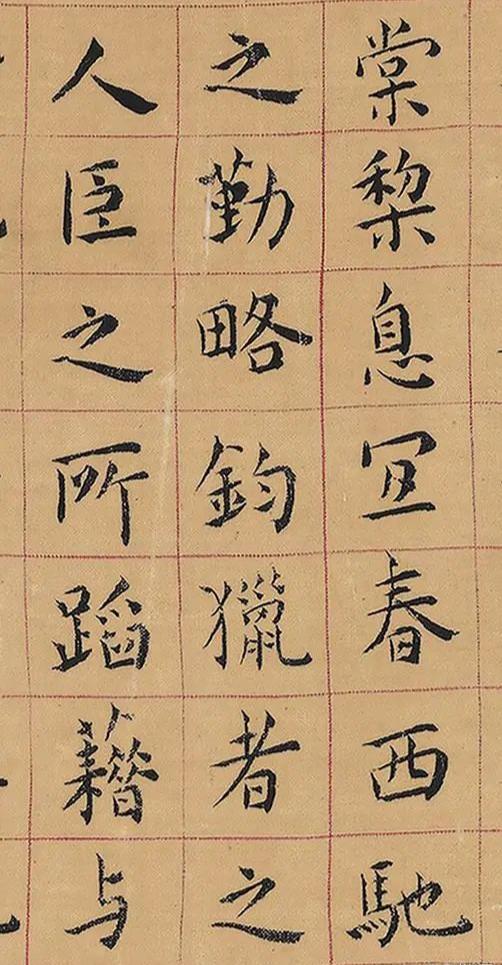 棠棃息冝春西馳
之勤略鈞獵者之
人臣之所蹈藉与